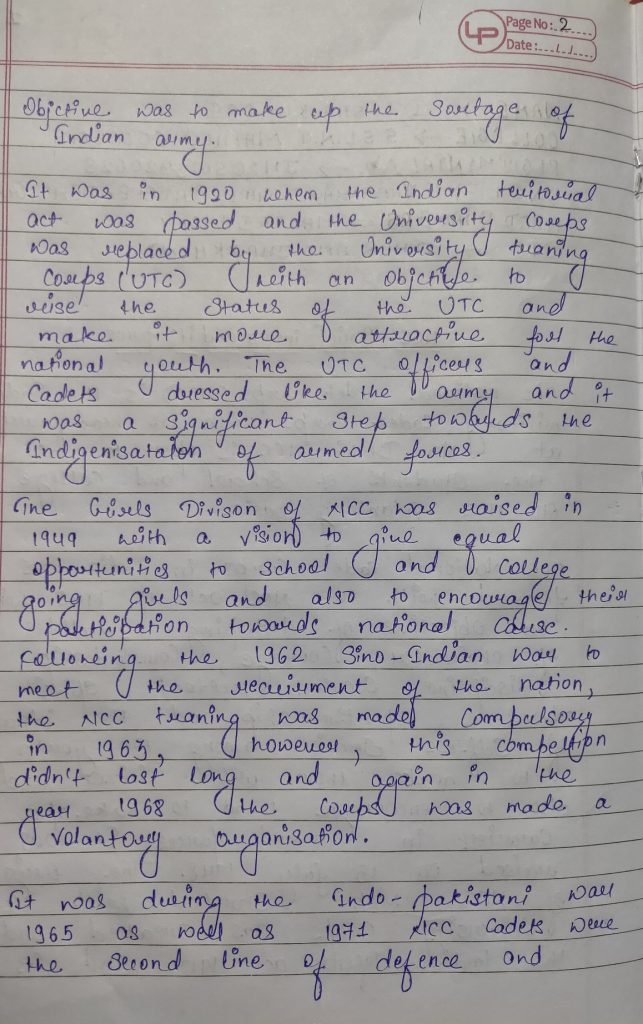 LP Page No: 2
Date: / /
Objctive was to make up the Sortage of
Indian army.
It was in 1920 when the Indian teritorial
act was passed and the University Corps
was replaced by the University traning
Corps (UTC) with an Objctive to
rise the Status of the UTC and
make it more attractive for the
national youth. The UTC officers and
Cadets dressed like the army and it
was a Significant Step towards the
Indigenisataion of armed forces.
The Girls Divison of NCC was raised in
1949 with a vision to give equal
opportunities to School and College
going girls and also to encourage their
participation towards national Cause.
Following the 1962 Sino-Indian War to
meet the recuirment of the nation,
the NCC traning was made Compulsory
in 1963, however, this compeltion
didn't last long and again in the
year 1968 the Corps was made a
Volantory organisation.
It was during the Indo-pakistani War
1965 as well as 1971 NCC Cadets were
the Second line of defence and